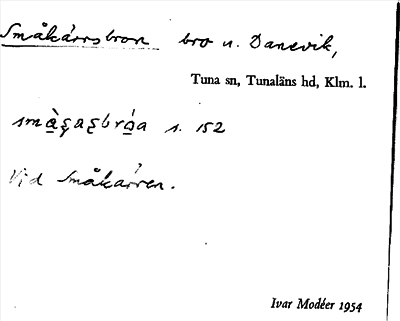 Småkärrsbron bro n. Danevik,
Tuna sn, Tunaläns hd, Klm. l.
s. 152
Vid Småkärren.
Ivar Modéer 1954